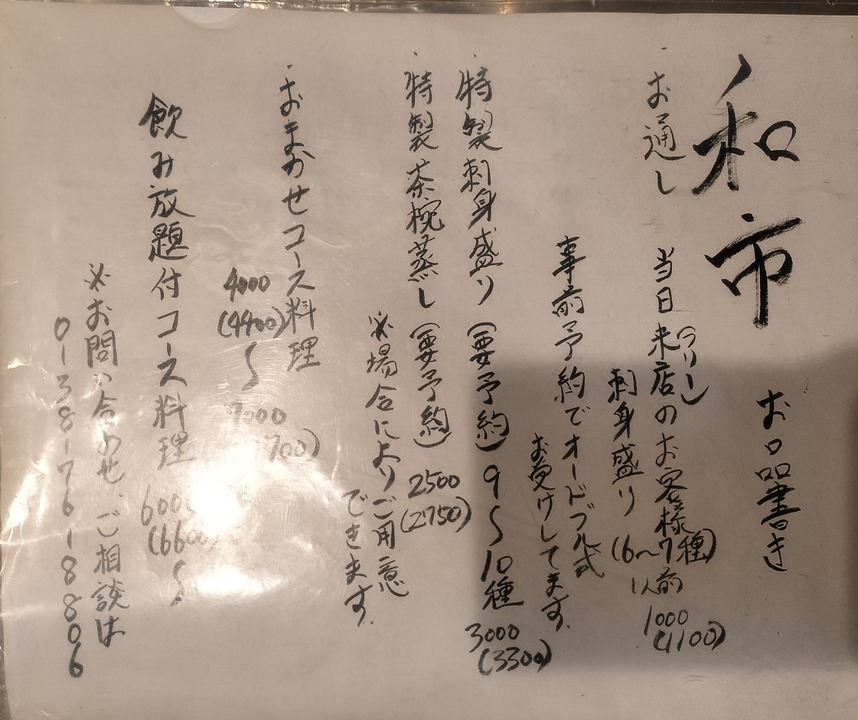 和市
お品書き
お通し 当日来店のお客様
(フリー)
刺身盛り(6~7種)
1人前
1000
(1100)
事前予約でオードブル式
お受けしてます.
特製刺身盛り(要予約)9~10種
3000
(3300)
特製茶椀蒸し(要予約)2500
(2750)
※場合によりご用意
できます.
おまかせコース料理
4000
(4400)
~
7000
(7700)
飲み放題付コース料理 6000
(6600)
~
※お問い合わせ、ご相談は
0138-76-8806